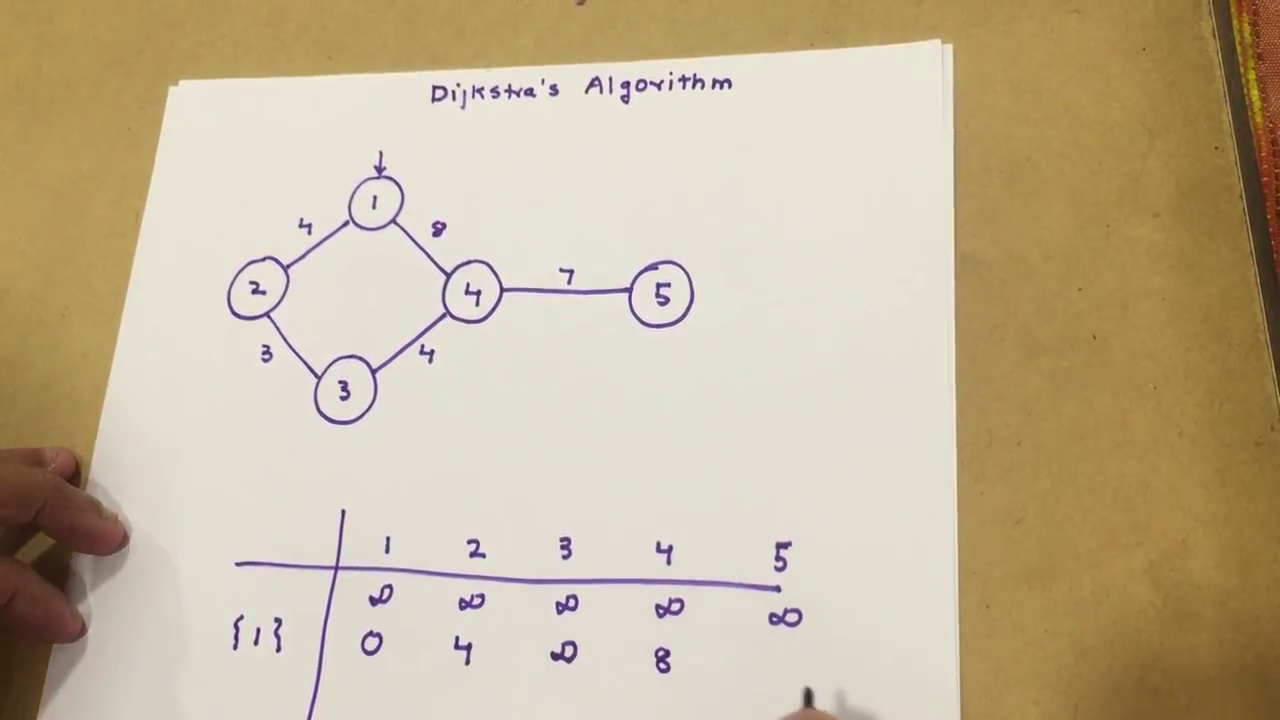 Dijkstra's Algorithm
1
4 8
2 4 7 5
3 4
3
1 2 3 4 5
∞ ∞ ∞ ∞ ∞
{1} 0 4 ∞ 8